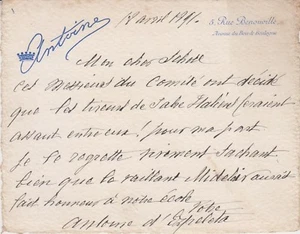 Antoine
5, Rue Denouville
Avenue du Bois de Boulogne
12 avril
Mon cher
Ces Messieurs du Comité ont décidé
que les tireurs de Sabre Italiens feraient
assaut entre eux ! pour ma part
je le regrette vivement sachant
bien que le vaillant aurait
fait honneur à notre école
Votre
Antoine d'Ezpeleta